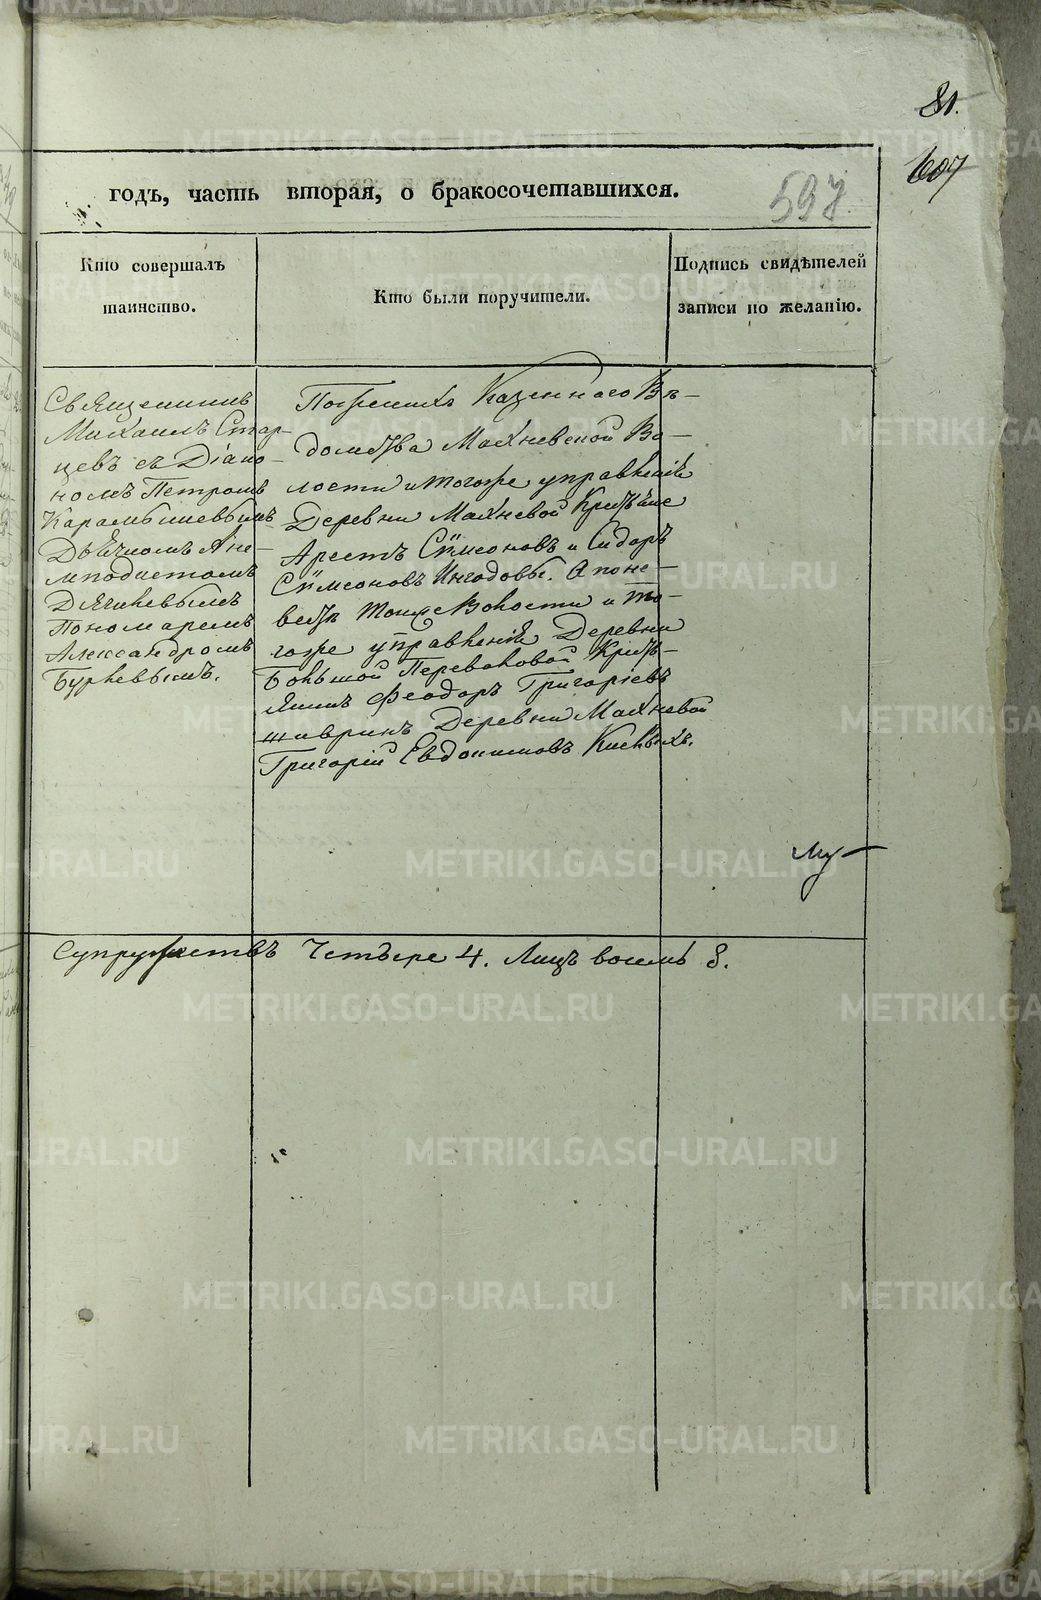 81.
607
годъ, часть вторая, о бракосочетавшихся.
597
Кто совершалъ
таинство.
Кто были поручители.
Подпись свидѣтелей
записи по желанію.
Священникъ
Михаилъ Стар-
цевъ съ Діако-
номъ Петромъ
Карамышевымъ
Дьячкомъ
Дягилевымъ
Пономаремъ
Александромъ
Бурневымъ.
По женихѣ Казеннаго Вѣ-
домства Махневской Во-
лости и тогоже управленія
Деревни Махневой Крестьяне
Сѵмеоновъ и Сидоръ
Сѵмеоновъ А по не-
вестѣ тоиже Волости и то-
гоже управленія Деревни
Большой Переваловой Кресть-
янинъ Феодоръ Григоріевъ
Деревни Махневой
Григорій Евдокимовъ
Супружествъ Четыре 4. Лицъ восемь 8.
METRIKI.GASO-URAL.RU